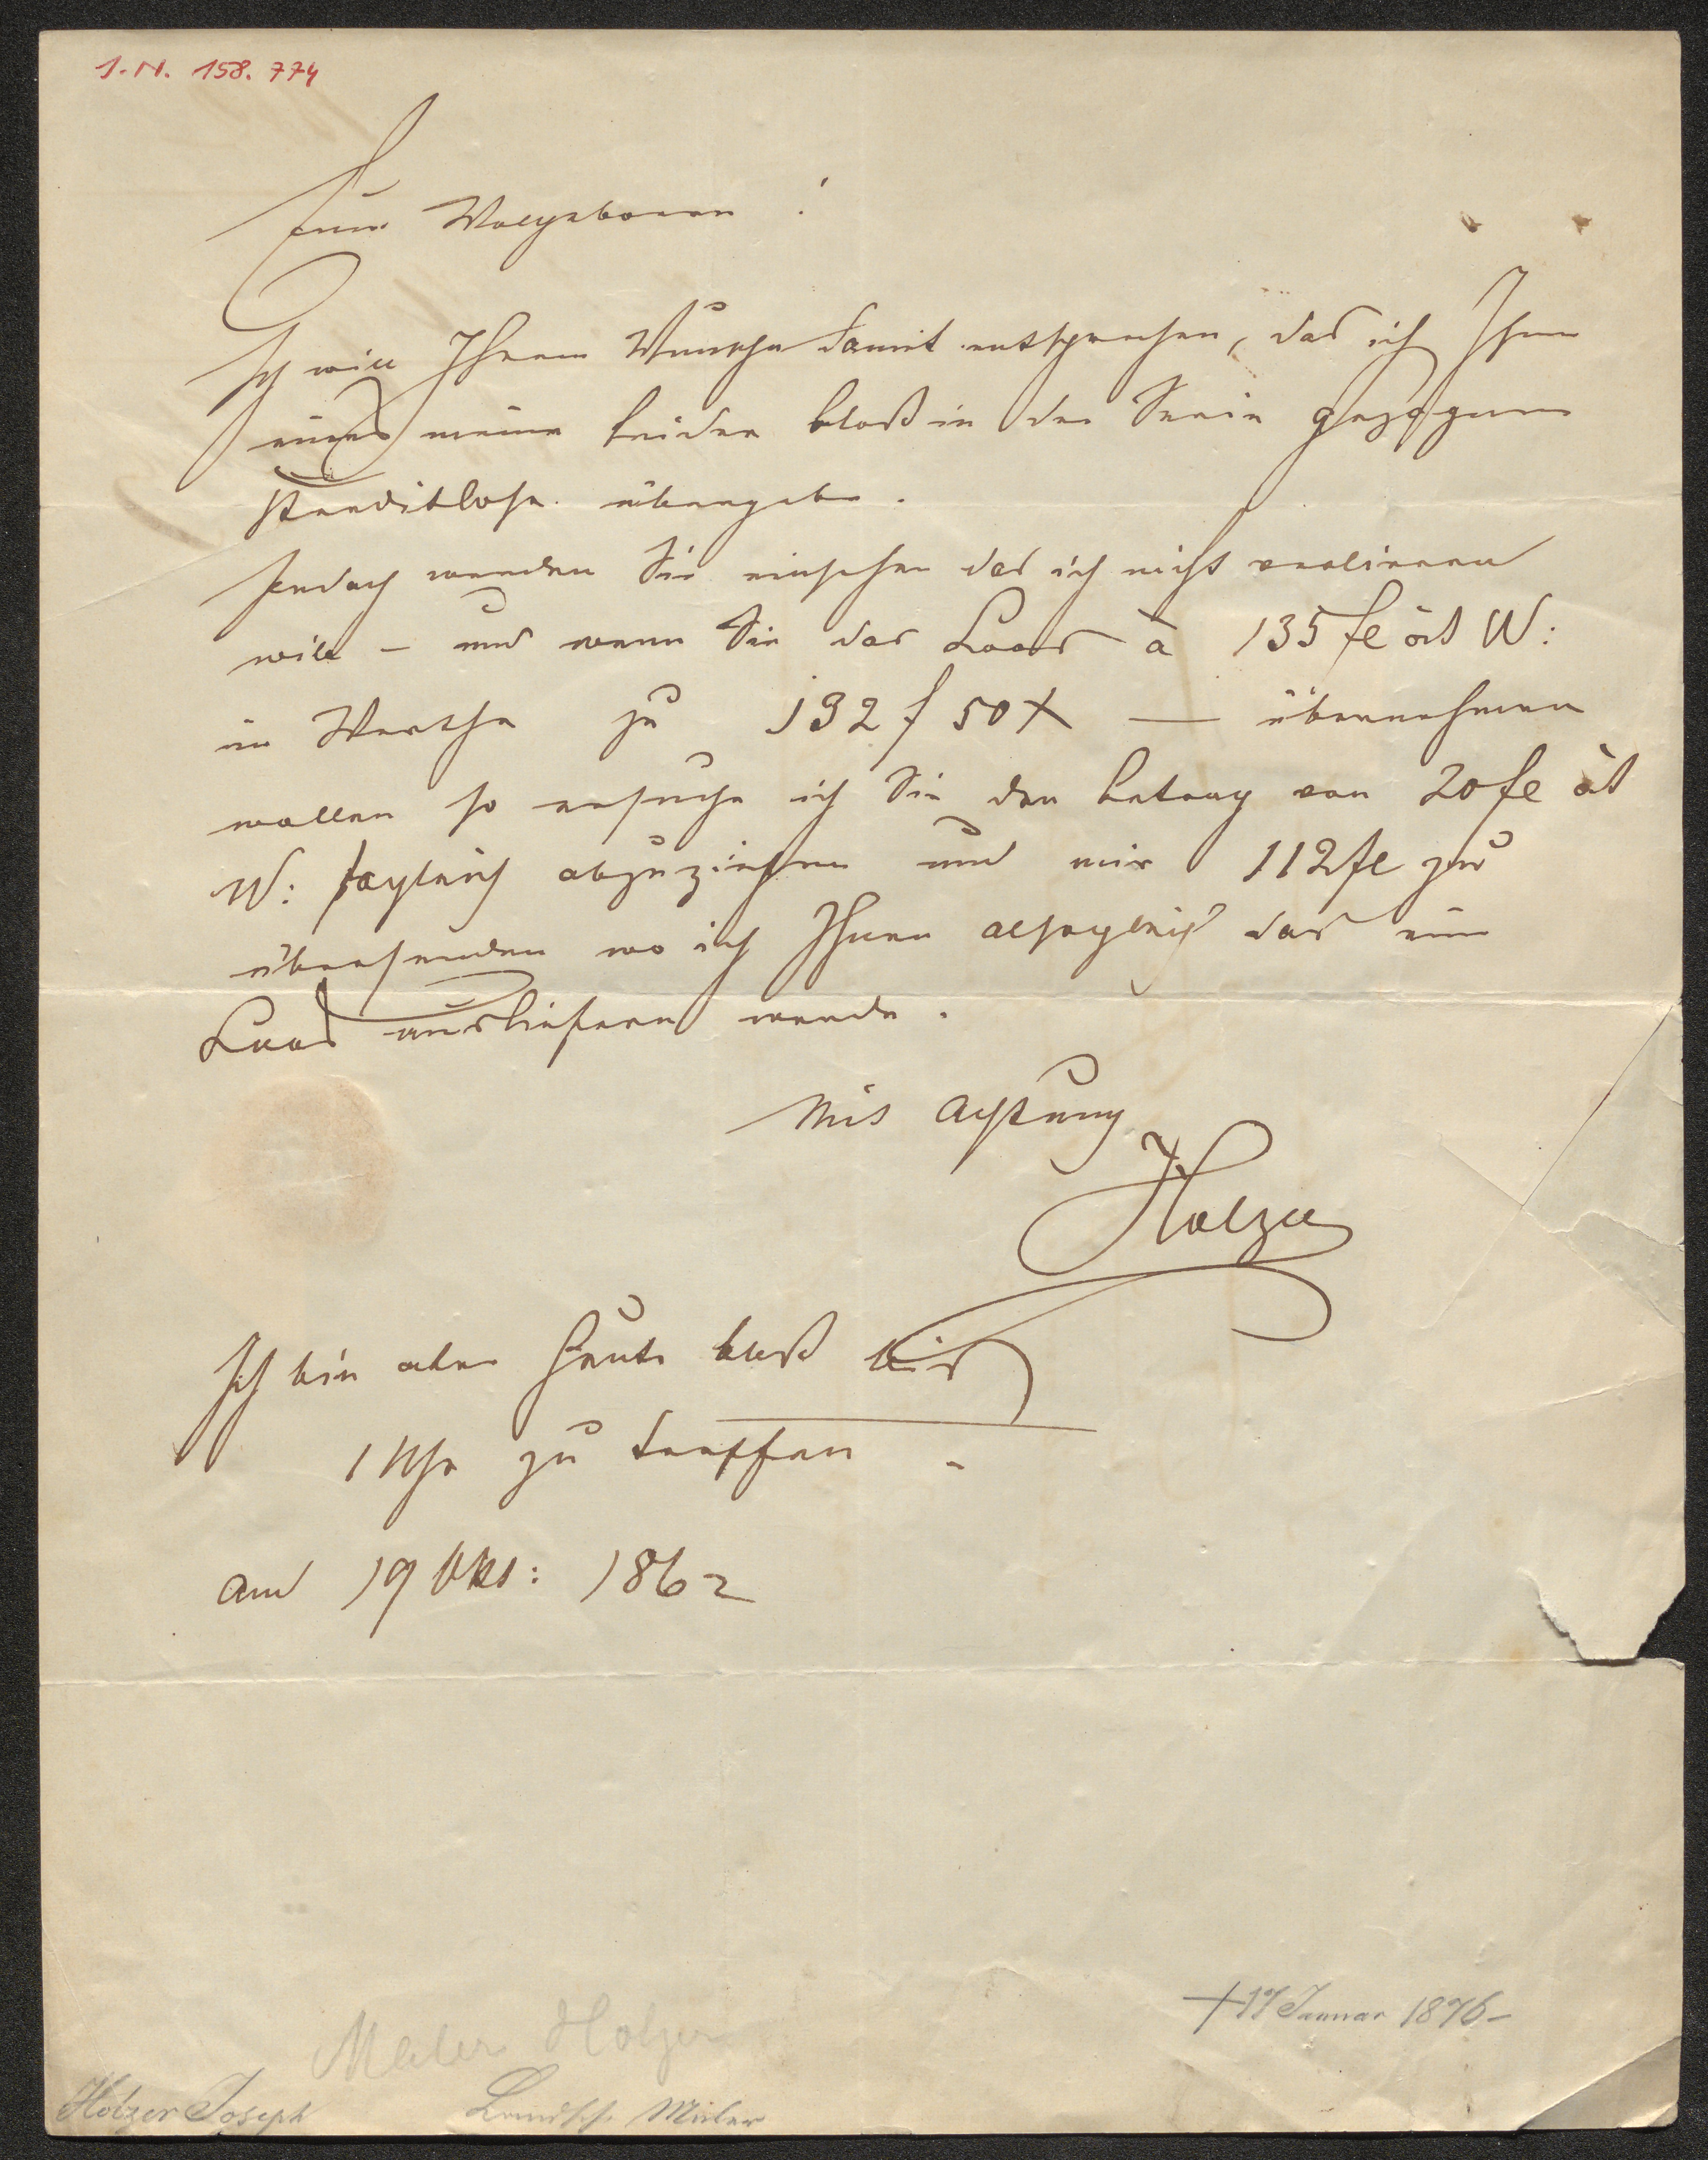 I.N. 158.774
Euer Wolgeboren !
Ich will Ihrem Wunsche damit entsprechen, das ich Ihnen
eines meiner beiden bloß in der Serie gezogenen
Kreditlose übergebe.
Jedoch werden Sie einsehen das ich nicht verlieren
will – und wenn Sie das Loos à 135 fl öst W:
im Werthe zu 132 f 50 x — übernehmen
wollen so ersuche ich Sie den Betrag von 20 fl öst
W: sogleich abzuziehen und mir 112 fl zu
übersenden wo ich Ihnen alsogleich das eine
Loos ausliefern werde.
Mit Achtung
Holzer
Ich bin aber heute bloß bis
1 Uhr zu treffen.
am 19 Okt: 1862
+ 17 Januar 1876 –
Maler Holzer
Holzer Joseph Landsch. Maler